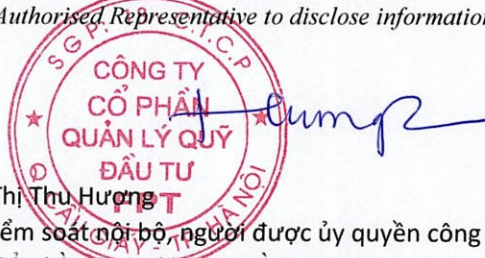 Authorised Representative to disclose information
CÔNG TY
CỔ PHẦN
QUẢN LÝ QUỸ
ĐẦU TƯ
PPT
Q CẦU GIẤY - TP HÀ NỘI
Thị Thu Hương
ểm soát nội bộ, người được ủy quyền công